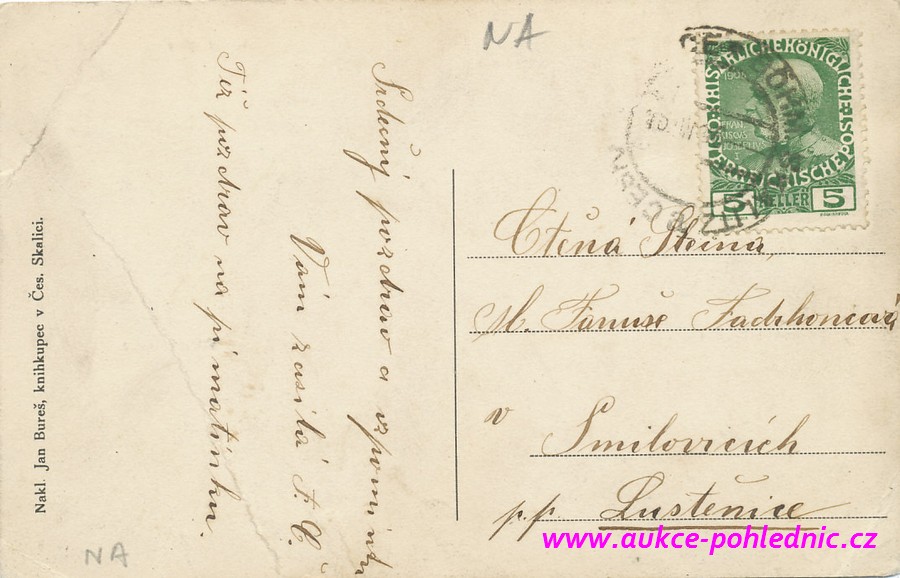 NA
Srdečný pozdrav a vzpomínku
Vám zasílá F. Č.
Též pozdrav na pí matinku.
Nakl. Jan Bureš, knihkupec v Čes. Skalici.
NA
KAISERLICHE KÖNIGLICHE ÖSTERREICHISCHE POST
1908
FRAN
CISCVS
IOSEPHVS
I
5 HELLER 5
Ctěná Slečna,
sl.
v
Smilovicích
pp. Luštěnice
www.aukce-pohlednic.cz